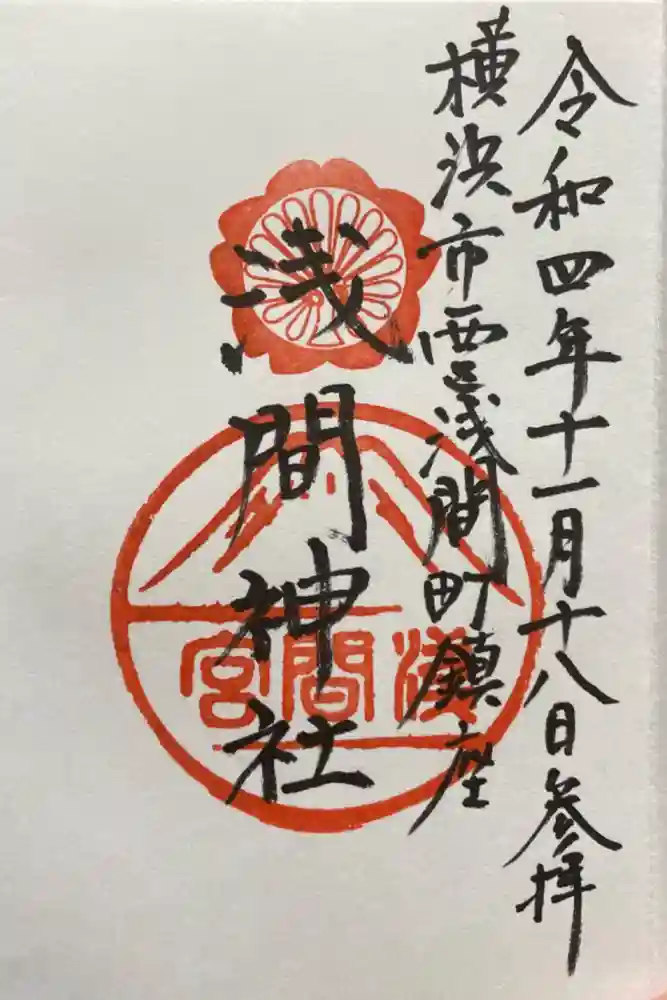 令和四年十一月十八日参拝
横浜市西区浅間町鎮座
浅間神社
淺間宮